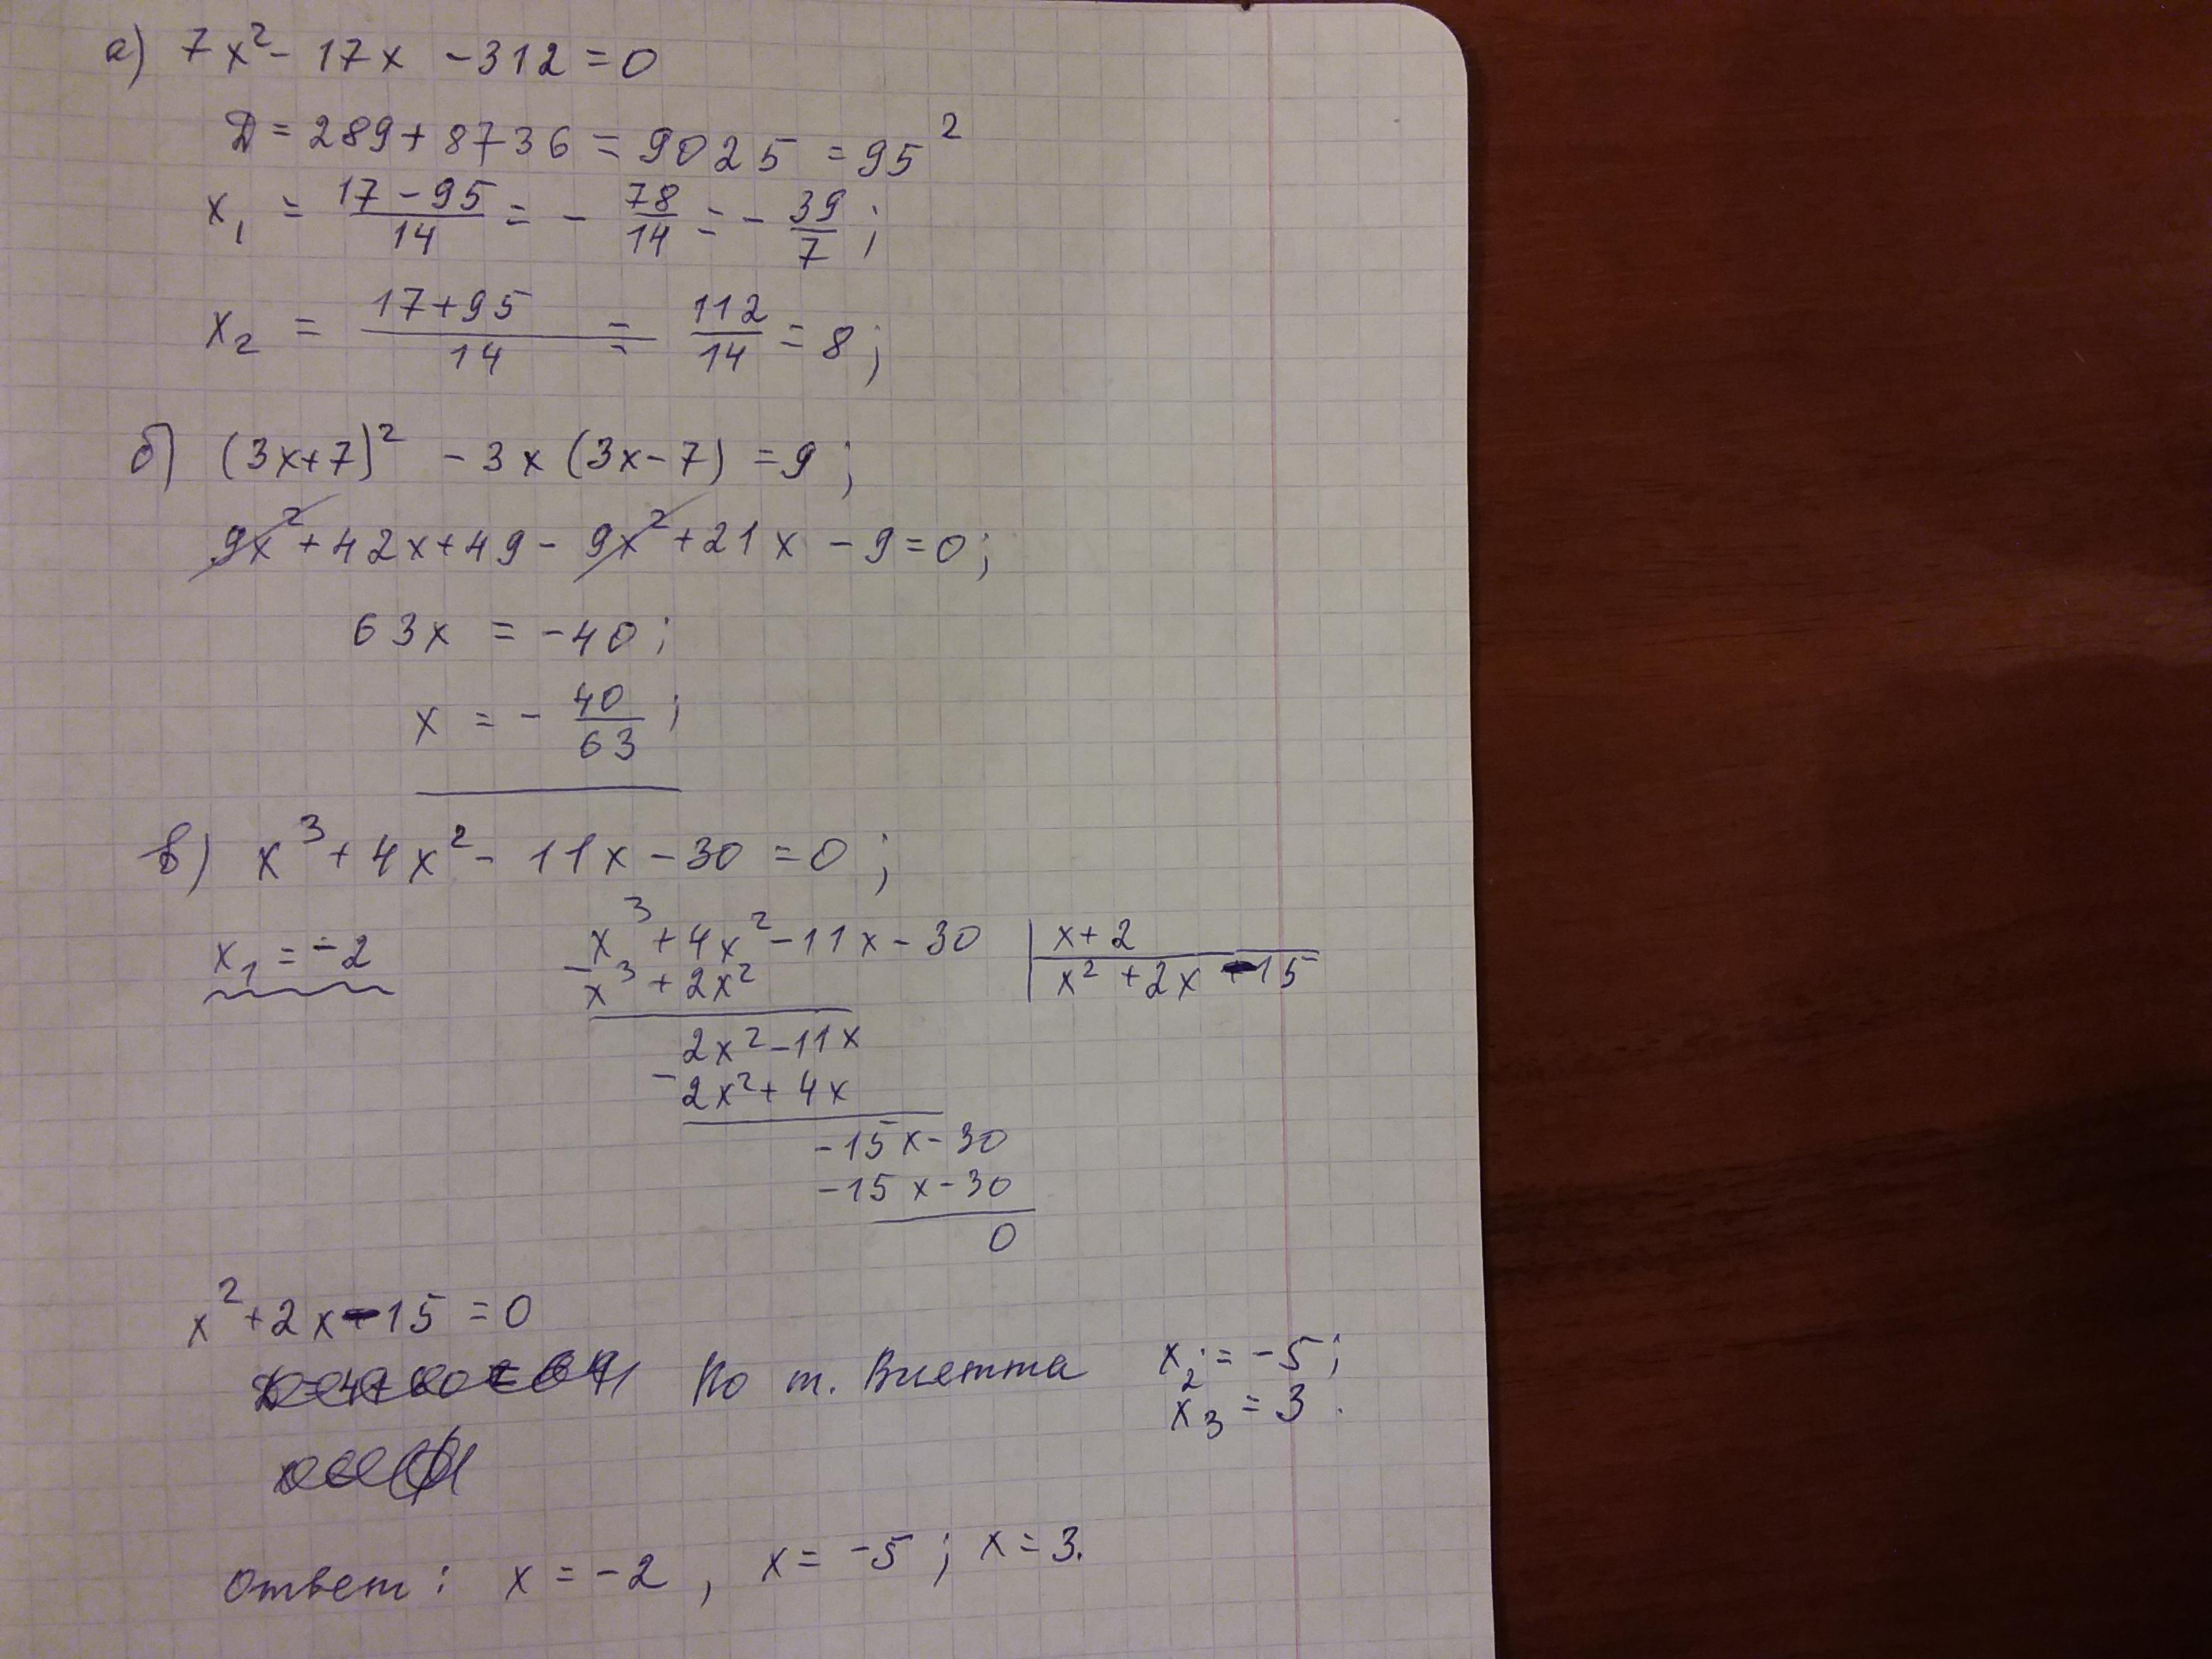 а) 7x² - 17x - 312 = 0
D = 289 + 8736 = 9025 = 95²
x₁ = (17 - 95)/14 = - 78/14 = - 39/7;
x₂ = (17 + 95)/14 = 112/14 = 8;
б) (3x+7)² - 3x(3x-7) = 9;
9x² + 42x + 49 - 9x² + 21x - 9 = 0;
63x = -40;
x = - 40/63;
в) x³ + 4x² - 11x - 30 = 0;
x₁ = -2
x³ + 4x² - 11x - 30 | x + 2
- x³ + 2x² | x² + 2x - 15
2x² - 11x
- 2x² + 4x
-15x - 30
-15x - 30
0
x² + 2x - 15 = 0
По т. Виетта x₂ = -5;
x₃ = 3.
Ответ: x = -2, x = -5; x = 3.